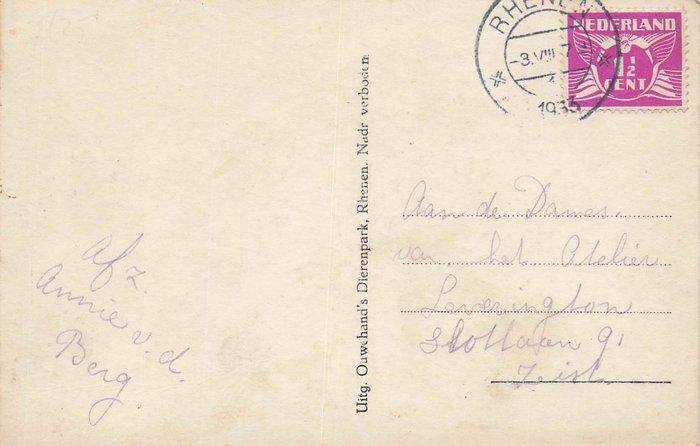 RHENEN
-3.VIII
1935
NEDERLAND
1 1/2
CENT
Uitg. Ouwehand's Dierenpark, Rhenen. Nadr verboden
Aan de Dames.
van het Atelier
Leverington
Slotlaan 91
Zeist
Afz.
Annie v.d.
Berg